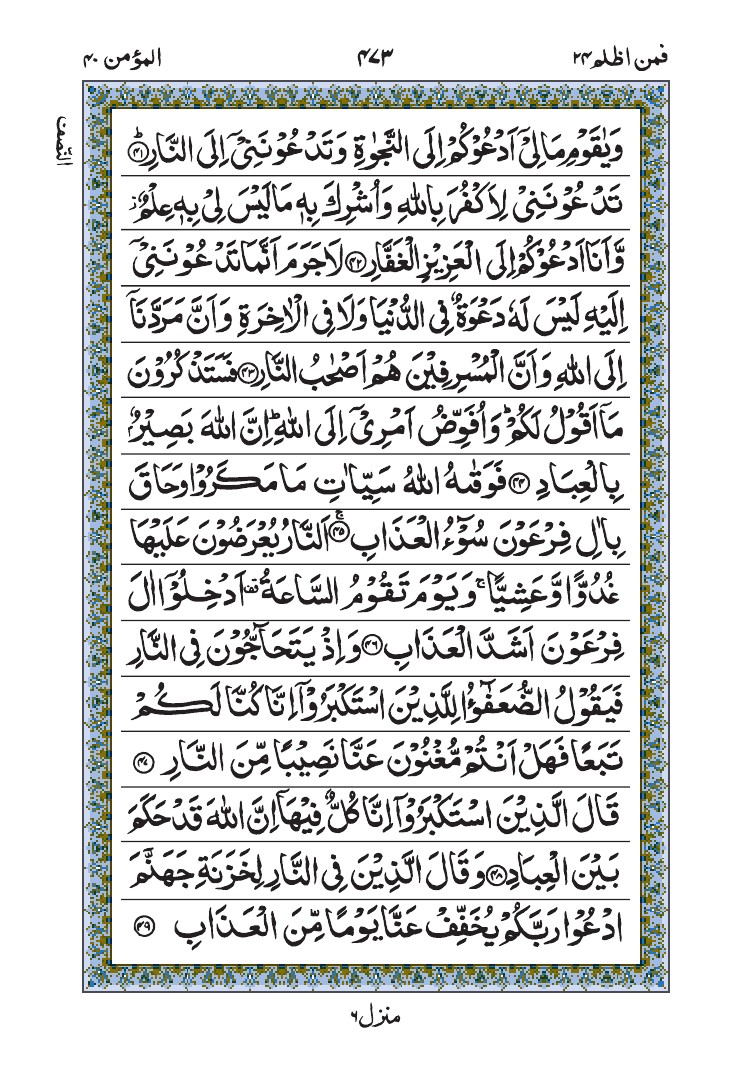 فمن اظلم ۲۴
۴۷۳
المؤمن ۴۰
النّصف
وَيٰقَوْمِ مَا لِىْۤ اَدْعُوْكُمْ اِلَى النَّجٰوةِ وَتَدْعُوْنَنِىْۤ اِلَى النَّارِؕ ۴۱
تَدْعُوْنَنِىْ لِاَكْفُرَ بِاللّٰهِ وَاُشْرِكَ بِهٖ مَا لَيْسَ لِىْ بِهٖ عِلْمٌؗ
وَّاَنَا اَدْعُوْكُمْ اِلَى الْعَزِيْزِ الْغَفَّارِ ۴۲ لَا جَرَمَ اَنَّمَا تَدْعُوْنَنِىْۤ
اِلَيْهِ لَيْسَ لَهٗ دَعْوَةٌ فِى الدُّنْيَا وَلَا فِى الْاٰخِرَةِ وَاَنَّ مَرَدَّنَاۤ
اِلَى اللّٰهِ وَاَنَّ الْمُسْرِفِيْنَ هُمْ اَصْحٰبُ النَّارِ ۴۳ فَسَتَذْكُرُوْنَ
مَاۤ اَقُوْلُ لَكُمْؕ وَاُفَوِّضُ اَمْرِىْۤ اِلَى اللّٰهِؕ اِنَّ اللّٰهَ بَصِيْرٌۢ
بِالْعِبَادِ ۴۴ فَوَقٰٮهُ اللّٰهُ سَيِّاٰتِ مَا مَكَرُوْا وَحَاقَ
بِاٰلِ فِرْعَوْنَ سُوْٓءُ الْعَذَابِۚ ۴۵ اَلنَّارُ يُعْرَضُوْنَ عَلَيْهَا
غُدُوًّا وَّعَشِيًّاۚ وَيَوْمَ تَقُوْمُ السَّاعَةُ قف اَدْخِلُوْۤا اٰلَ
فِرْعَوْنَ اَشَدَّ الْعَذَابِ ۴۶ وَاِذْ يَتَحَآجُّوْنَ فِى النَّارِ
فَيَقُوْلُ الضُّعَفٰٓؤُا لِلَّذِيْنَ اسْتَكْبَرُوْۤا اِنَّا كُنَّا لَكُمْ
تَبَعًا فَهَلْ اَنْتُمْ مُّغْنُوْنَ عَنَّا نَصِيْبًا مِّنَ النَّارِ ۴۷
قَالَ الَّذِيْنَ اسْتَكْبَرُوْۤا اِنَّا كُلٌّ فِيْهَاۤ اِنَّ اللّٰهَ قَدْ حَكَمَ
بَيْنَ الْعِبَادِ ۴۸ وَقَالَ الَّذِيْنَ فِى النَّارِ لِخَزَنَةِ جَهَنَّمَ
ادْعُوْا رَبَّكُمْ يُخَفِّفْ عَنَّا يَوْمًا مِّنَ الْعَذَابِ ۴۹
منزل ۶